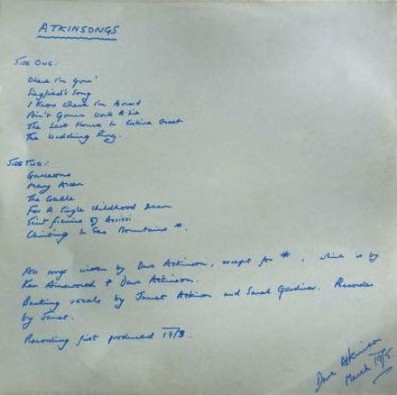 ATKINSONGS
SIDE ONE:
Where I'm Goin'
Siegfried's Song
I Know Where I'm Bound
Ain't Gonna Work A
The Last House In Street
The Wedding Ring.
SIDE TWO:
Galleons
Mary Allen
The
For A Single Childhood Dream
Saint Francis Of Assisi
Climbing In The Mountains *.
All songs written by Dave Atkinson, except for *, which is by
Ken Ainsworth & Dave Atkinson.
Backing vocals by Janet Atkinson and Sarah Gardiner. Recorder
by Janet.
Recording first produced
Dave Atkinson
March